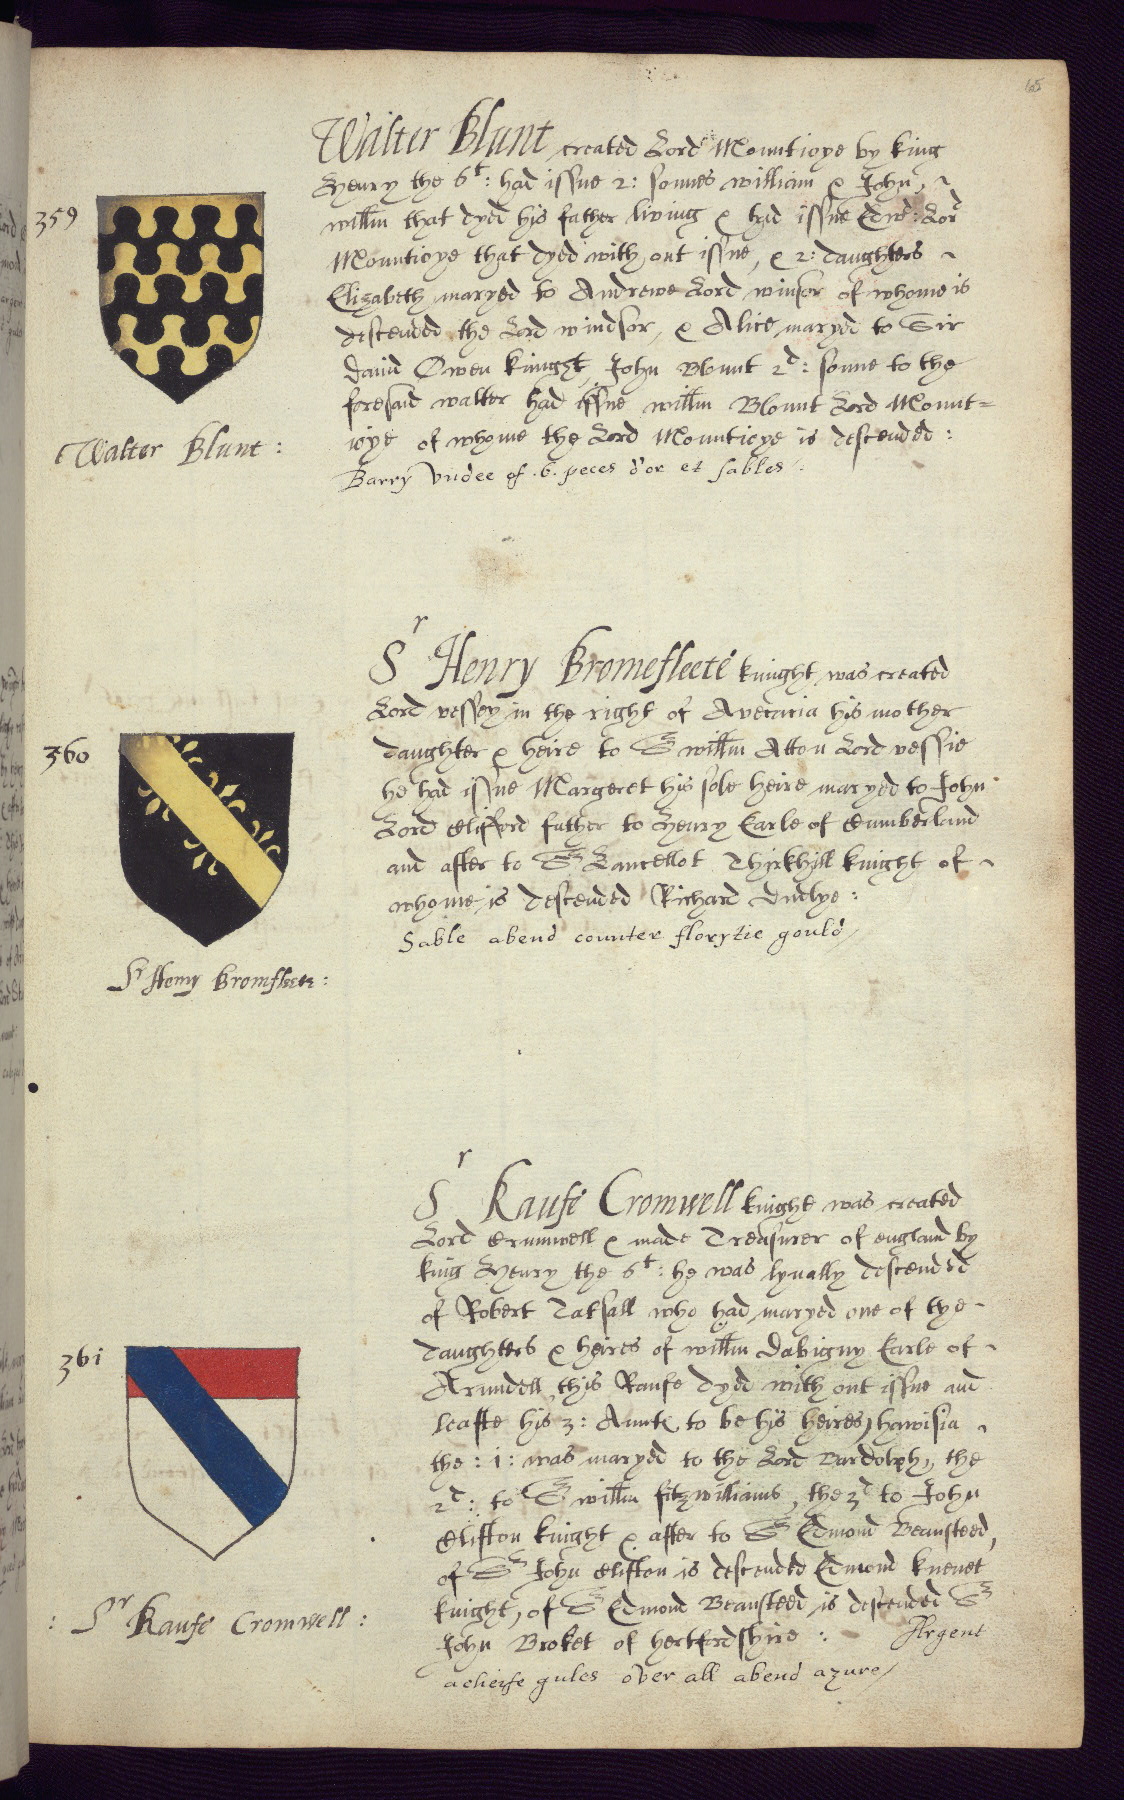 65
Walter Blunt created Lord Mountioye by king
Henry the 6t: had issue 2: sonnes william & John,
willm that dyed his father living & had issue Edwd: Lord
Mountioye that dyed with out issue, & 2: daughters
Elizabeth maryed to Andrewe Lord winsor of whome is
descended the Lord windsor, & Alice maryed to Sir
dauid Owen knight, John Blount 2d: sonne to the
foresaid walter had issue willm Blount Lord Mount=
ioye of whome the Lord Mountioye is descended:
Barry Vndee of .6. peces d'or et sables.
359
Walter Blunt:
Sr Henry Bromefleete knight was created
Lord vessey in the right of his mother
daughter & heire to Sr willm Atton Lord vessie
he had issue Margeret his sole heire maryed to John
Lord Clifford father to Henry Earle of Cumberland
and after to Sr Lancellot Thirkhill knight of
whome is descended Richard dudlye:
Sable abend counter florytie gould
360
Sr Henry Bromfleete:
Sr Raufe Cromwell knight was created
Lord Crumwell & made Treasurer of england by
king Henry the 6t: he was lynally descended
of Robert Tatsall who had maryed one of the
daughters & heires of willm dabigny Earle of
Arundell, this Raufe dyed with out issue and
leafte his 3: Auntes to be his heires, hawisia
the: 1: was maryed to the Lord Bardolph, the
2d: to Sr willm fitzwilliams, the 3d to John
Clifton knight & after to Sr Edmond Beansteed,
of Sr John Clifton is descended Edmond knevet
knight, of Sr Edmond Beansteed is descended Sr
John Broket of hertfordshire: Argent
acheife gules over all abend azure
361
: Sr Raufe Cromwell: